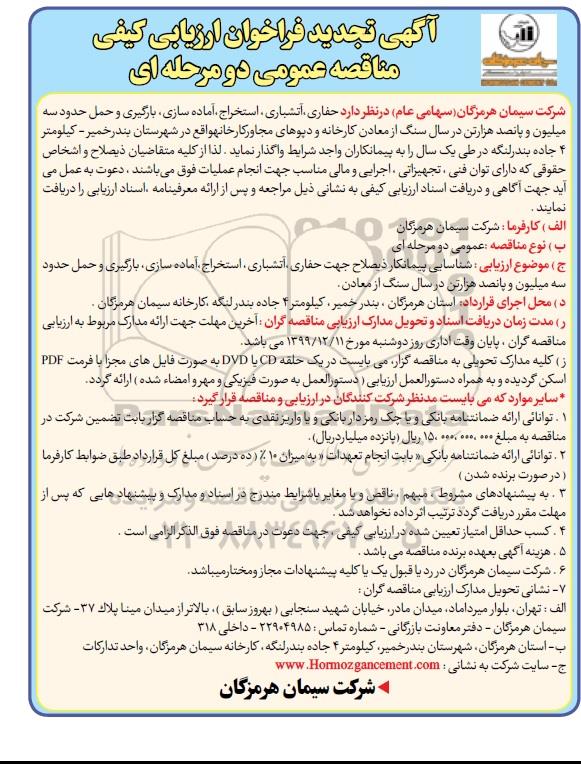 آگهی تجدید فراخوان ارزیابی کیفی
مناقصه عمومی دو مرحله ای
شرکت سیمان هرمزگان(سهامی عام) درنظر دارد حفاری،آتشباری، استخراج،آماده سازی، بارگیری و حمل حدود سه
میلیون و پانصد هزارتن در سال سنگ از معادن کارخانه و دپوهای مجاورکارخانهواقع در شهرستان بندرخمیر- کیلومتر
۴ جاده بندرلنگه در طی یک سال را به پیمانکاران واجد شرایط واگذار نماید . لذا از کلیه متقاضیان ذیصلاح و اشخاص
حقوقی که دارای توان فنی ، تجهیزاتی ، اجرایی و مالی مناسب جهت انجام عملیات فوق می‌باشند ، دعوت به عمل می
آید جهت آگاهی و دریافت اسناد ارزیابی کیفی به نشانی ذیل مراجعه و پس از ارائه معرفینامه ،اسناد ارزیابی را دریافت
نمایند .
الف ) کارفرما : شرکت سیمان هرمزگان
ب ) نوع مناقصه :عمومی دو مرحله ای
ج ) موضوع ارزیابی : شناسایی پیمانکار ذیصلاح جهت حفاری ،آتشباری ، استخراج،آماده سازی، بارگیری و حمل حدود
سه میلیون و پانصد هزارتن در سال سنگ از معادن.
د ) محل اجرای قرارداد: استان هرمزگان ، بندر خمیر ، کیلومتر۴ جاده بندر لنگه ،کارخانه سیمان هرمزگان .
ر ) مدت زمان دریافت اسناد و تحویل مدارک ارزیابی مناقصه گران : آخرین مهلت جهت ارائه مدارک مربوط به ارزیابی
مناقصه گران ، پایان وقت اداری روز دوشنبه مورخ ۱۳۹۹/۱۲/۱۱ می باشد.
ز ) کلیه مدارک تحویلی به مناقصه گزار، می بایست در یک حلقه CD یا DVD به صورت فایل های مجزا با فرمت PDF
اسکن گردیده و به همراه دستورالعمل ارزیابی ( دستورالعمل به صورت فیزیکی و مهر و امضاء شده ) ارائه گردد.
*سایر موارد که می بایست مدنظر شرکت کنندگان در ارزیابی و مناقصه قرار گیرد :
۱ . توانائی ارائه ضمانتنامه بانکی و یا چک رمز دار بانکی و یا واریز نقدی به حساب مناقصه گزار بابت تضمین شرکت در
مناقصه به مبلغ ۱۵،۰۰۰،۰۰۰،۰۰۰ ریال (پانزده میلیاردریال).
۲ . توانائی ارائه ضمانتنامه بانکی« بابت انجام تعهدات « به میزان ۱۰ ٪ ( ده درصد ) مبلغ کل قرارداد طبق ضوابط کارفرما
( در صورت برنده شدن )
۳ . به پیشنهادهای مشروط ، مبهم ، ناقص و یا مغایر باشرایط مندرج در اسناد و مدارک و پیشنهاد هایی که پس از
مهلت مقرر دریافت گردد ترتیب اثر داده نخواهد شد .
۴ . کسب حداقل امتیاز تعیین شده در ارزیابی کیفی ، جهت دعوت در مناقصه فوق الذکر الزامی است .
۵ . هزینه آگهی بعهده برنده مناقصه می باشد .
۶ . شرکت سیمان هرمزگان در رد یا قبول یک یا کلیه پیشنهادات مجاز ومختارمیباشد.
۷- نشانی تحویل مدارک ارزیابی مناقصه گران :
الف : تهران، بلوار میرداماد، میدان مادر، خیابان شهید سنجابی ( بهروز سابق )، بالاتر از میدان مینا پلاك ۳۷- شرکت
سیمان هرمزگان - دفتر معاونت بازرگانی - شماره تماس : ۲۲۹۰۴۹۸۵ - داخلی ۳۱۸
ب- استان هرمزگان، شهرستان بندرخمیر، کیلومتر۴ جاده بندرلنگه ، کارخانه سیمان هرمزگان، واحد تدارکات
ج- سایت شرکت به نشانی : www.Hormozgancement.com
شرکت سیمان هرمزگان